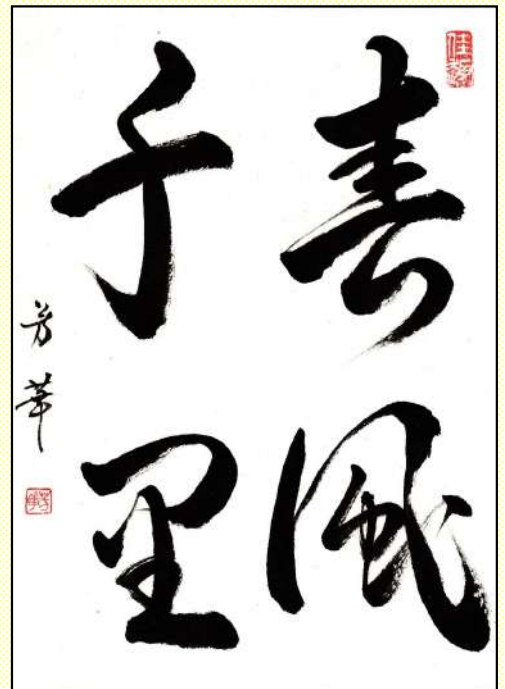 春風
千里
芳華